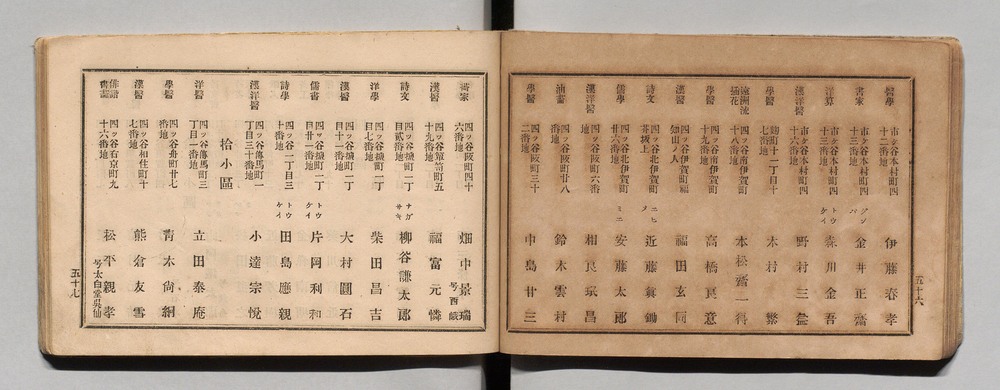 醫學
市ヶ谷本村町四
十二番地
伊藤春孝
書家
市ヶ谷本村町四
十三番地
金井正齋
洋算
市ヶ谷本村町四
十三番地
トウ
ケイ
森川金吾
漢洋醫
市ヶ谷本村町四
十六番地
野村三益
學醫
麹町十一丁目十
七番地
木村繁
遠洲流
插花
四ッ谷南伊賀町
十八番地
本松齋一得
學醫
四ッ谷南伊賀町
十九番地
高橋良意
漢醫
四ッ谷伊賀町福
知山ノ人
福田玄同
詩文
四ッ谷北伊賀町
茶坂上
ニヒ
ノ
近藤眞鋤
儒學
四ッ谷北伊賀町
廿八番地
ミニ
安藤太郎
漢洋醫
四ッ谷阪町六番
地
相良珉昌
油畫
四ッ谷阪町廿八
番地
鈴木雲村
學醫
四ッ谷阪町三十
二番地
中島廿三
五十六
書家
四ッ谷阪町四十
六番地
畑中景瑞
号西
漢醫
四ッ谷簞笥町五
十九番地
福富元憐
詩文
四ッ谷傳町一丁
目貳番地
ナガ
サキ
柳谷謙太郎
洋學
四ッ谷傳町一丁
目七番地
柴田昌吉
漢醫
四ッ谷傳町一丁
目十一番地
大村圓石
儒書
四ッ谷傳町二丁
目廿一番地
トウ
ケイ
片岡利和
詩學
四ッ谷一丁目三
十番地
トウ
ケイ
田島應親
漢洋醫
四ッ谷傳馬町一
丁目三十番地
小達宗悅
拾小區
洋醫
四ッ谷傳馬町三
丁目一番地
立田泰庵
學醫
四ッ谷舟町廿七
番地
靑木尙綱
漢醫
四ッ谷和住町十
七番地
熊倉友雪
俳諧
書畫
四ッ谷右京町九
十六番地
松平親孝
号太白堂吳仙
五十七